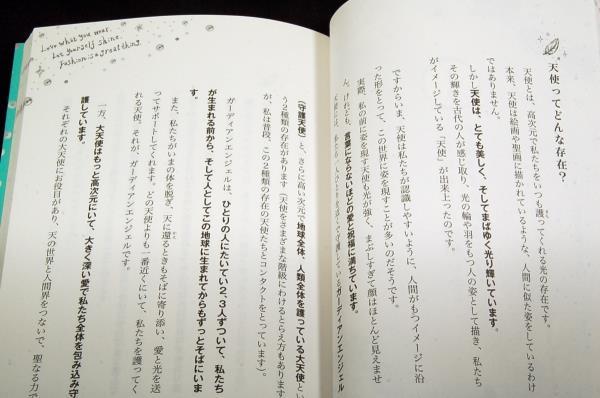 天使ってどんな存在?
天使とは、高次元で私たちをいつも護ってくれる光の存在です。
本来、天使は絵画や聖画に描かれているような、人間に似た姿をしているわけ
ではありません。
しかし天使は、とても美しく、そしてまばゆく光り輝いています。
その輝きを古代の人が感じ取り、光の輪や羽をもつ人の姿として描き、私たち
がイメージしている「天使」が出来上ったのです。
ですからいま、天使は私たちが認識しやすいように、人間がもつイメージに沿
った形をとって、この世界に姿を現すことが多いのだそうです。
実際、私の前に姿を現す天使も光が強く、まぶしすぎて顔はほとんど見えませ
ん。けれども、言葉にならないほどの愛と祝福に満ちています。
ガーディアンエンジェル
Love what you wear.
Let yourself shine.
Fashion is a great thing.
(守護天使)と、さらに高い次元で地球全体、人類全体を護っている大天使とい
う2種類の存在があります(天使をさまざまな階級にわけるとらえ方もあります
が、私は普段、この2種類の存在の天使たちとコンタクトをとっています)。
ガーディアンエンジェルは、ひとりの人にたいてい2、3人ずついて、私たち
が生まれる前から、そして人としてこの地球に生まれてからもずっとそばにいま
す。
また、私たちがいまの体を脱ぎ、天に還るときもそばに寄り添い、愛と光を送
ってサポートしてくれます。どの天使よりも一番近くにいて、私たちを護ってく
れる天使。それが、ガーディアンエンジェルです。
一方、大天使はもっと高次元にいて、大きく深い愛で私たち全体を包み込み守
護しています。
それぞれの大天使にお役目があり、天の世界と人間界をつないで、聖なる力で